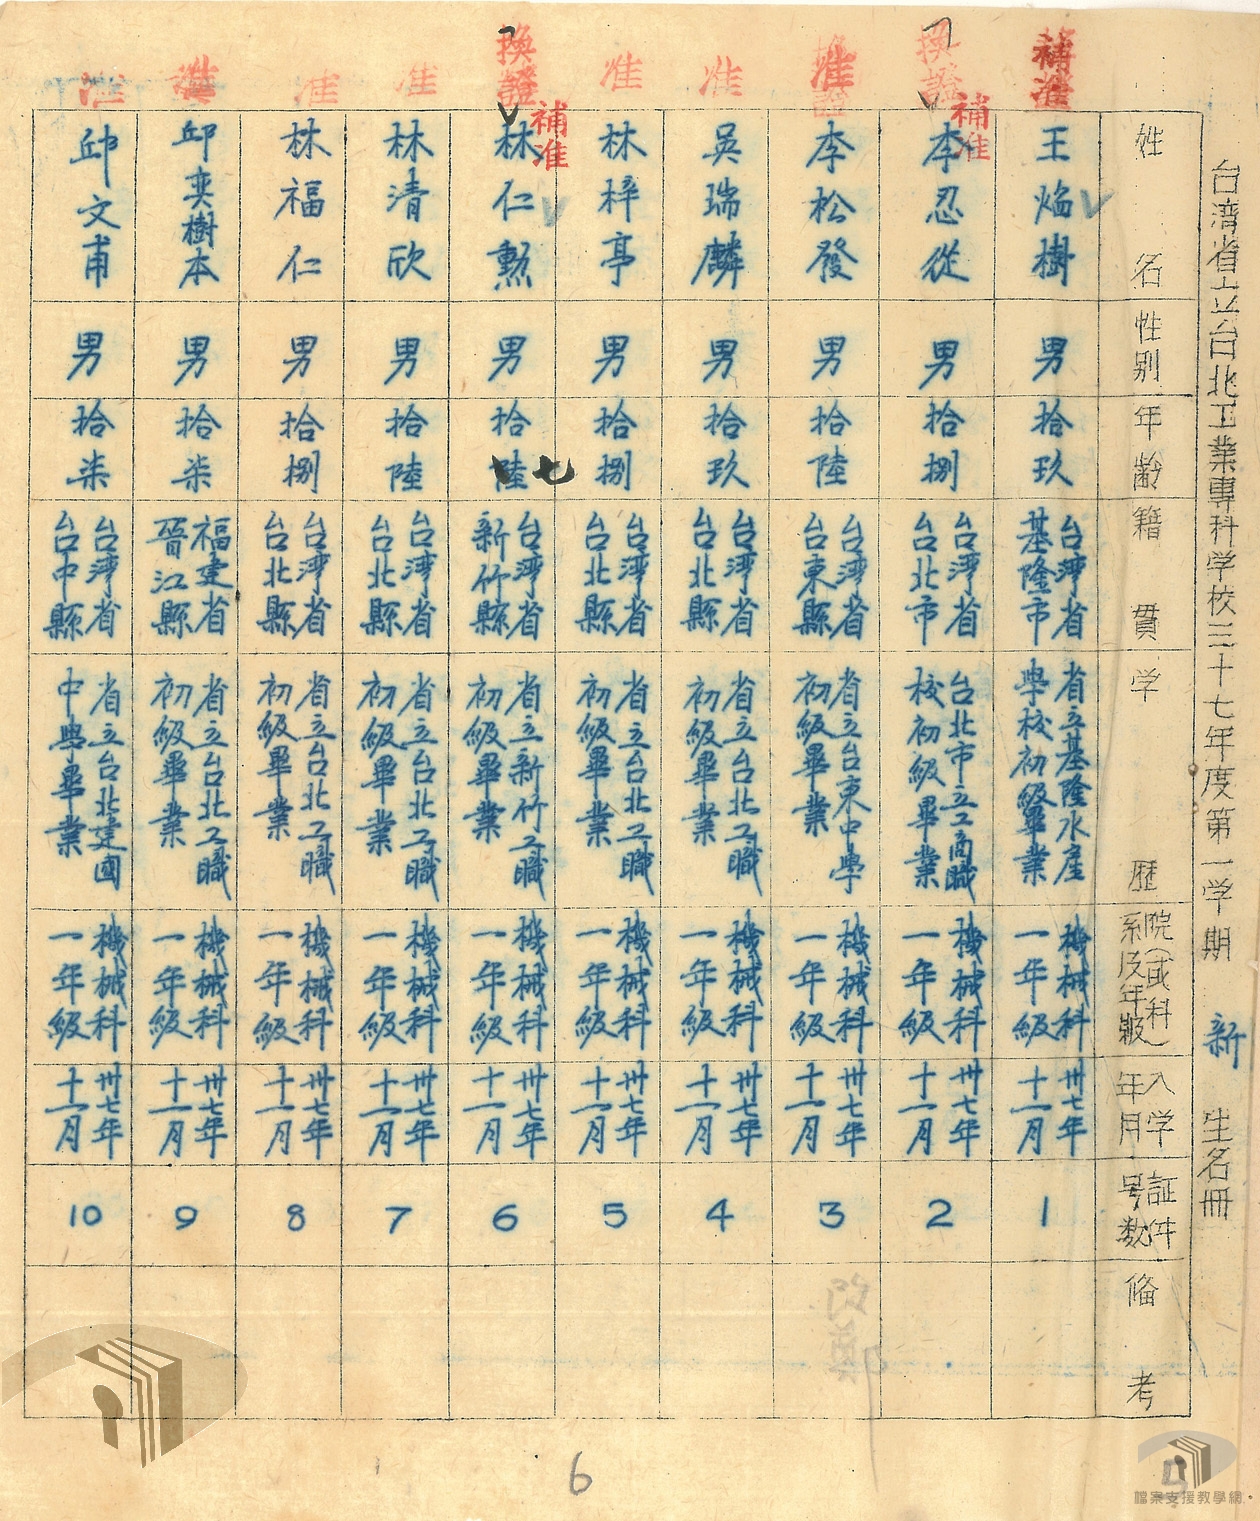 台湾省立台北工業專科学校三十七年度第一学期 新 生名冊
姓名
性别
年齡
籍貫
学歷
院(或科)
系及年級
入学
年月
証件
号数
俻考
補准
王焰樹
男
拾玖
台灣省
基隆市
省立基隆水產
學校初級畢業
機械科
一年級
卅七年
十一月
1
換證
補准
李忍從
男
拾捌
台灣省
台北市
台北市立工商職
校初級畢業
機械科
一年級
卅七年
十一月
2
准
李松發
男
拾陸
台灣省
台東縣
省立台東中學
初級畢業
機械科
一年級
卅七年
十一月
3
准
吳瑞麟
男
拾玖
台灣省
台北縣
省立台北工職
初級畢業
機械科
一年級
卅七年
十一月
4
准
林梓亭
男
拾捌
台灣省
台北縣
省立台北工職
初級畢業
機械科
一年級
卅七年
十一月
5
換證
補准
林仁勲
男
拾陸
七
台灣省
新竹縣
省立新竹工職
初級畢業
機械科
一年級
卅七年
十一月
6
准
林清欣
男
拾陸
台灣省
台北縣
省立台北工職
初級畢業
機械科
一年級
卅七年
十一月
7
准
林福仁
男
拾捌
台灣省
台北縣
省立台北工職
初級畢業
機械科
一年級
卅七年
十一月
8
准
邱奕樹本
男
拾柒
福建省
晉江縣
省立台北工職
初級畢業
機械科
一年級
卅七年
十一月
9
准
邱文甫
男
拾柒
台灣省
台中縣
省立台北建國
中學畢業
機械科
一年級
卅七年
十一月
10
6
檔案支援教學網